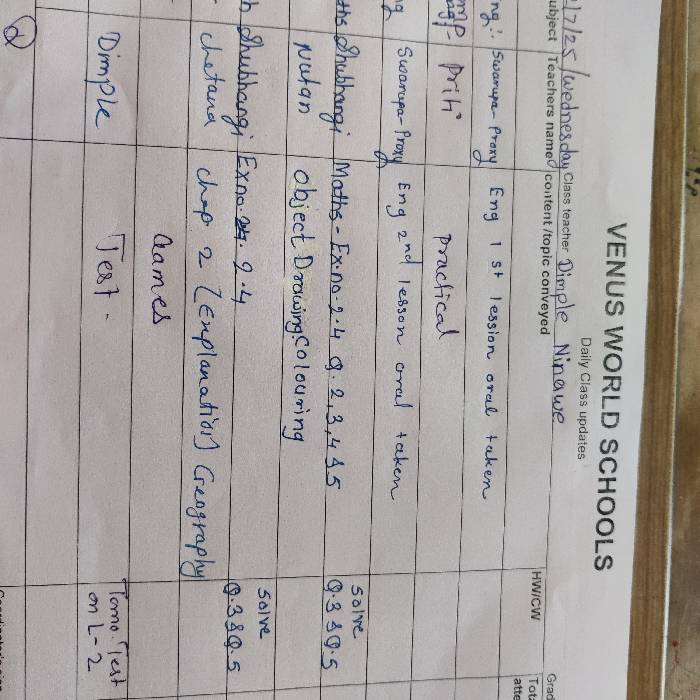 VENUS WORLD SCHOOLS
Daily Class updates
7/25/Wednesday Class teacher Dimple Ninawe
Grad
ubject Teachers name content/topic conveyed HW/CW Tot
atte
ng:- Swarupa-Proxy Eng 1st lession oral taken
Priti Practical
ng Swarupa-Proxy Eng 2nd lesson oral taken
ths Shubhangi Maths-Ex.no.2.4 Q.2,3,4&5 Solve Q.3&Q.5
Nutan Object Drawing Colouring
h Shubhangi Ex no. 2.4 Solve Q.3&Q.5
chetana chap 2 (Explanation) Geography
Games
Dimple Test- Tomo. Test on L-2
2